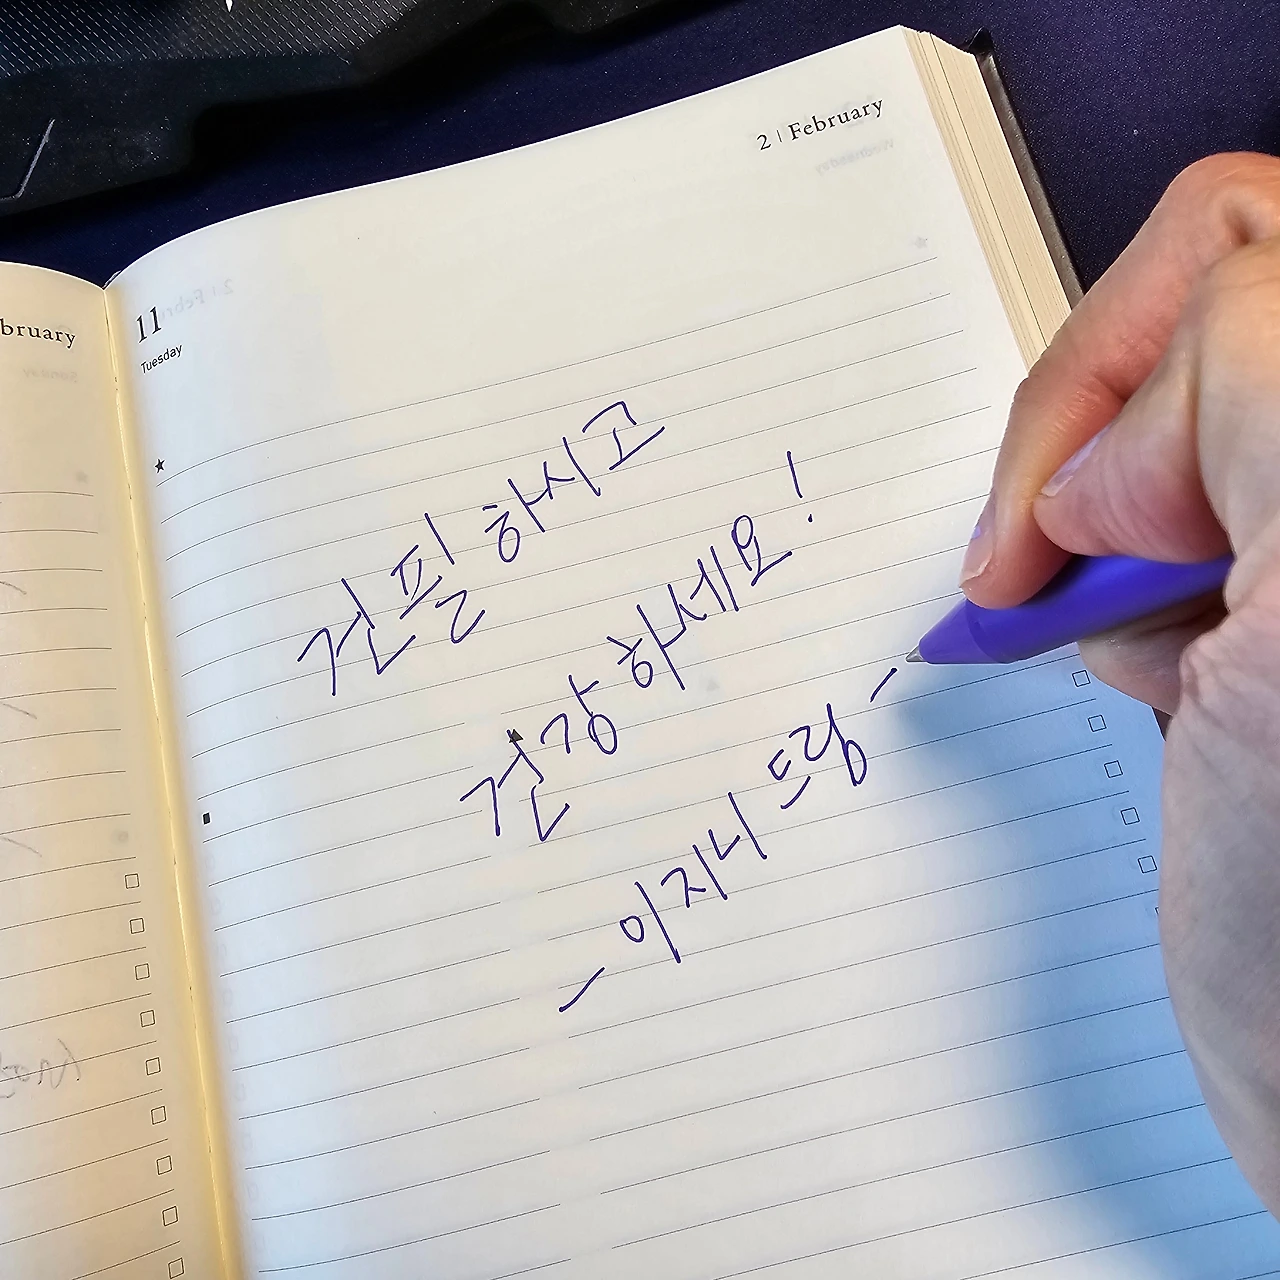 bruary
2 | February
11
Tuesday
건필하시고
건강하세요!
- 이지니 드림 -